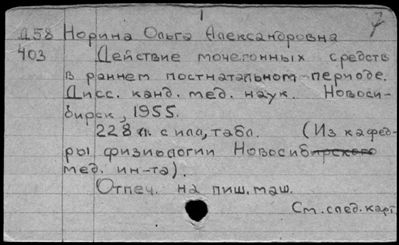 Д58 Норина Ольга Александровна
403 Действие мочегонных средств
в раннем постнатальном периоде.
Дисс. канд. мед. наук. Новоси-
бирск, 1955.
228 л. с илл, табл. (Из кафед-
ры физиологии Новосибирского
мед. ин-та).
Отпеч. на пиш. маш.
См. след. карт.